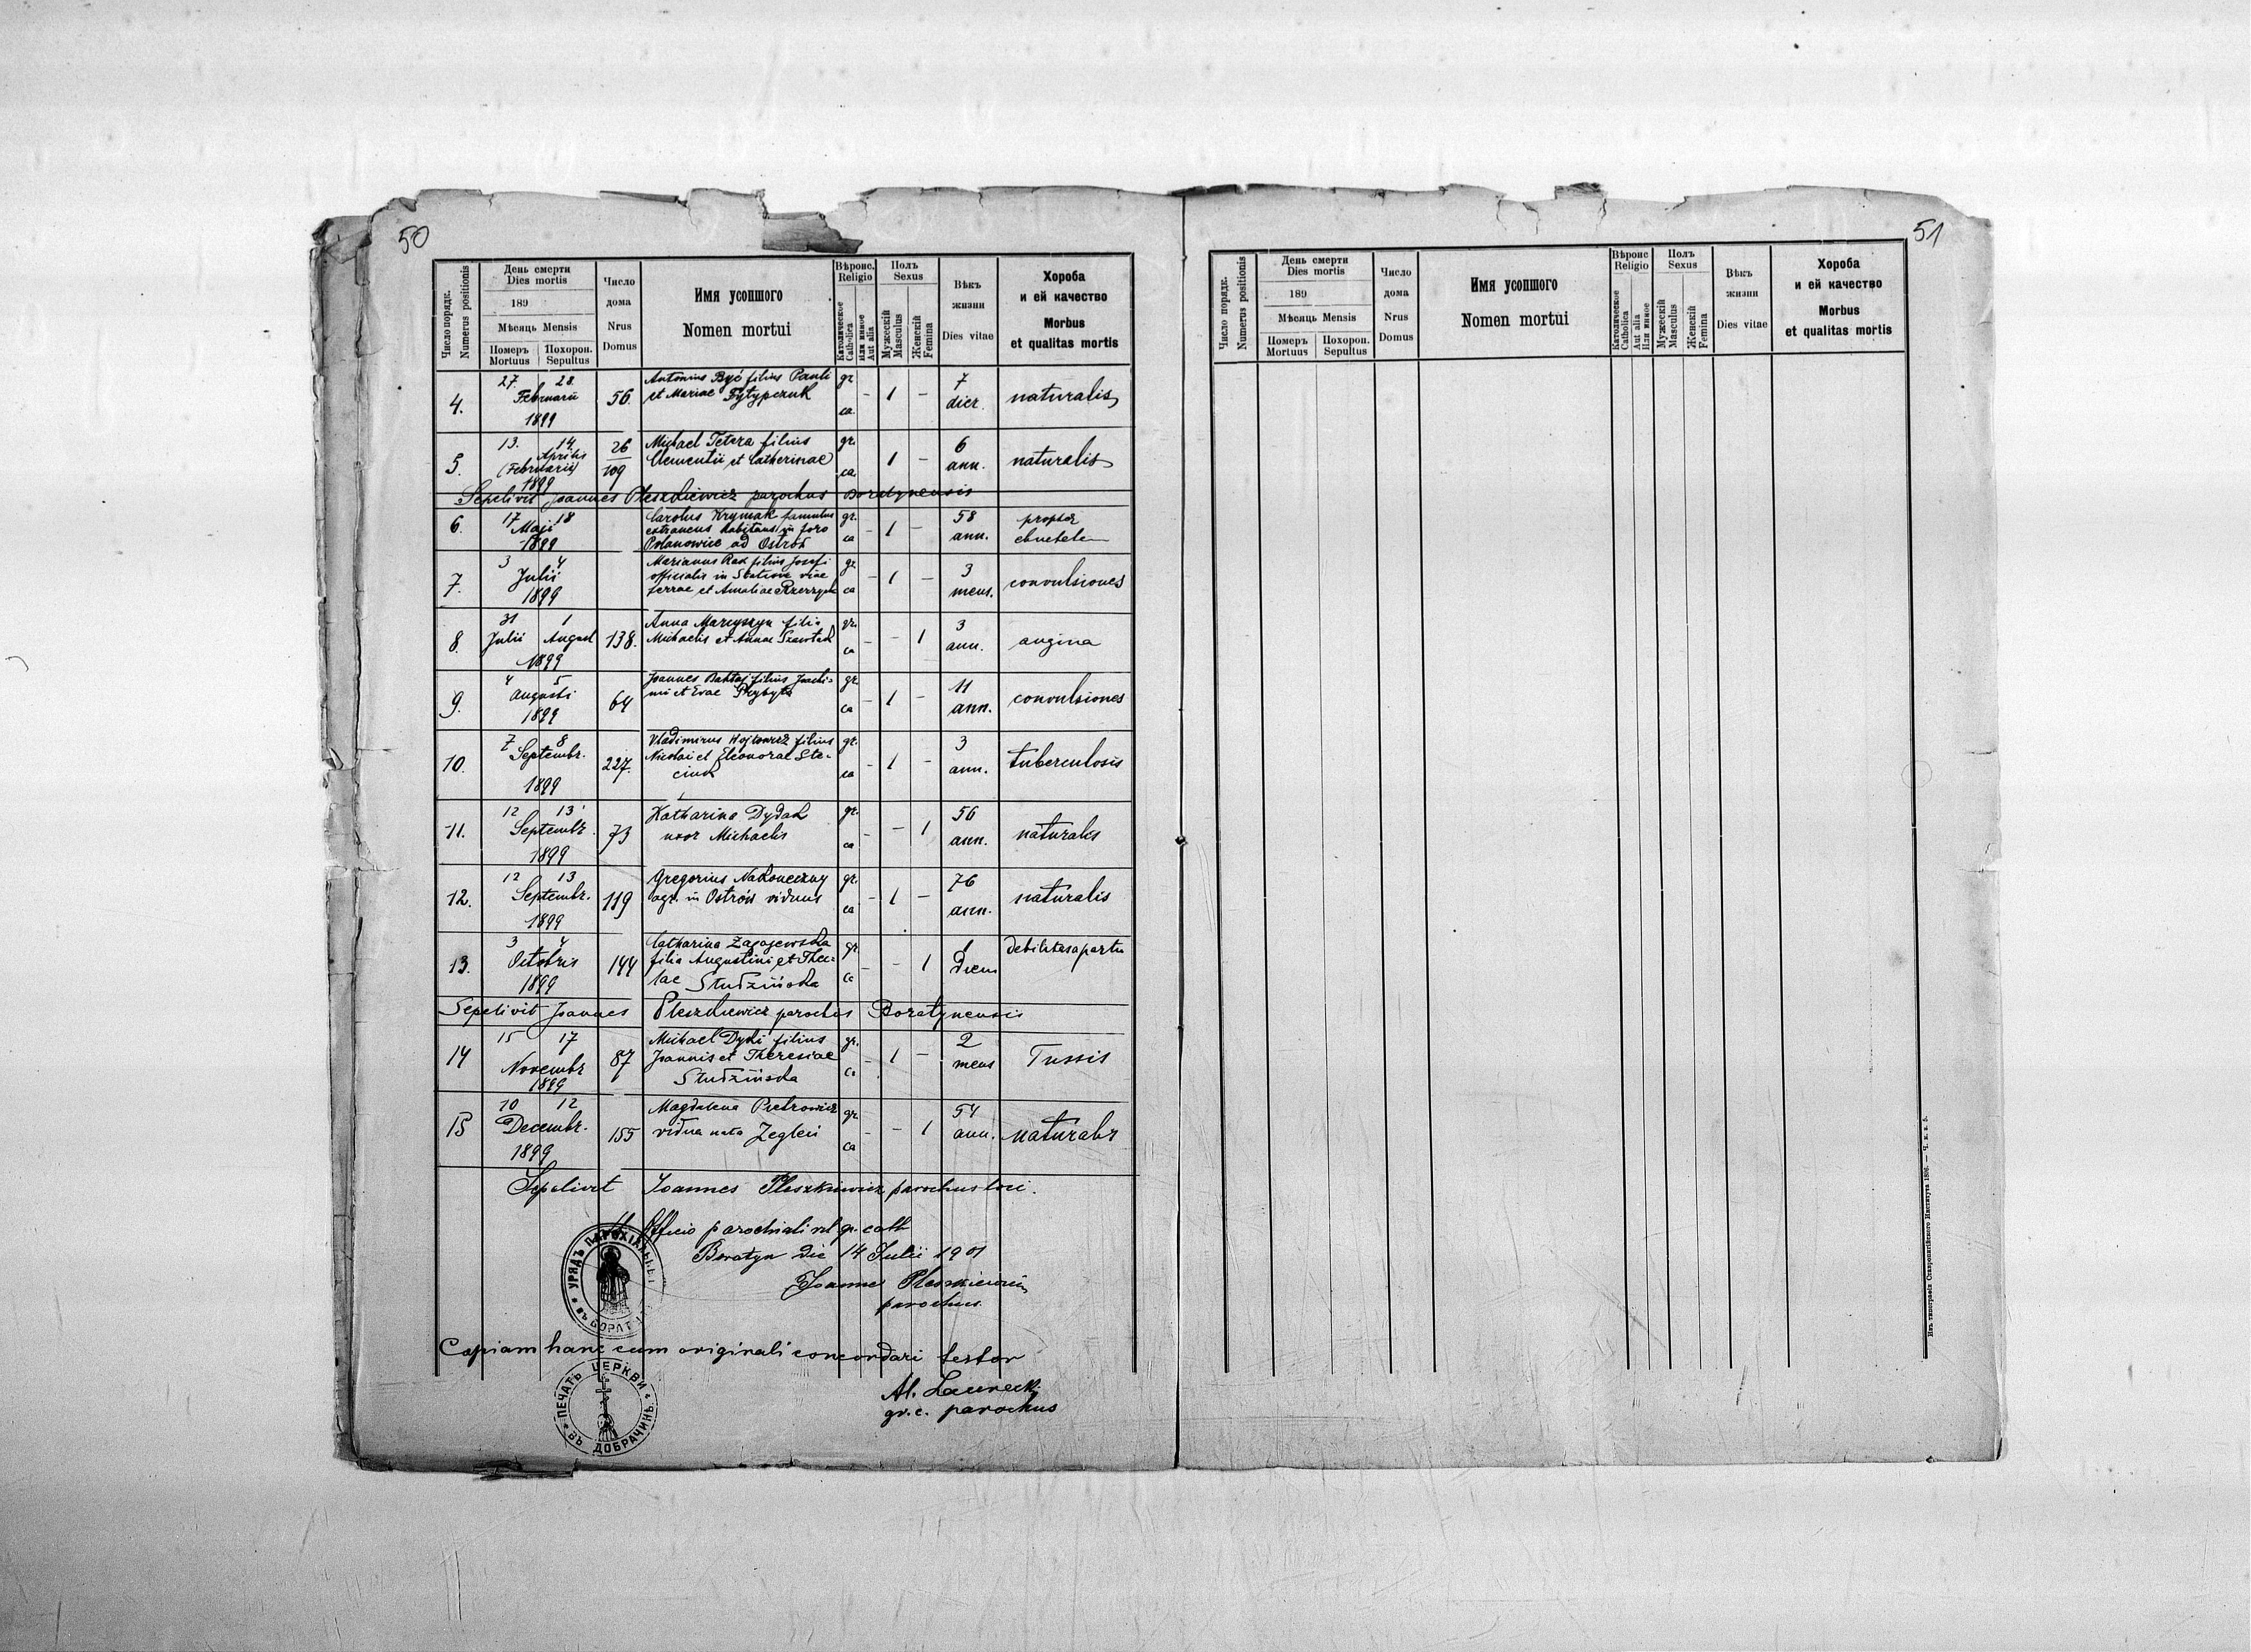 50
Число порядк.
Numerus positionis
День смерти
Dies mortis
189
Мѣсяць Mensis
Померъ Mortuus
Похорон. Sepultus
Число дома
Nrus Domus
Имя усопшого
Nomen mortui
Вѣроис. Religio
Католическое Catholica
Или иное Aut alia
Полъ Sexus
Мужескій Masculus
Женскій Femina
Вѣкъ жизни
Dies vitae
Хороба
и ей качество
Morbus
et qualitas mortis
4. 27. 28. Februarii 1899 56. Antonius Być filius Pauli gr. ca. - 1 - 7 dier. naturalis
et Mariae
5. 13. 14. Aprilis (Februarii) 1899 26 109 Michael Tetera filius gr. ca. 1 - 6 ann. naturalis
Clementii et Catherinae
Sepelivit Joannes Pleszkiewicz parochus Boratynensis
6. 17 18 Maji 1899 Carolus Krymak famulus gr. ca - 1 - 58 ann. propter
extraneus habitans in foro
Polanowice ad Ostrów
7. 3 4 Julii 1899 Marianus Rak filius Josefi gr. ca - 1 - 3 mens. convulsiones
officialis in Statione viae
ferrae et Amaliae
8. 31 1 Julii August 1899 138. Anna Marcyszyn filia gr. ca - - 1 3 ann. angina
Michaelis et Annae
9. 4 5 Augusti 1899 64 Joannes filius Joachi- gr. ca - 1 - 11 ann. convulsiones
mi et Evae
10. 7 8 Septembr. 1899 227. Vladimirus Wojtowicz filius gr. ca - 1 - 3 ann. tuberculosis
Nicolai et Eleonorae Ste-
ciuk
11. 12 13 Septembr. 1899 73 Katharina Dydak gr. ca - - 1 56 ann. naturalis
uxor Michaelis
12. 12 13 Septembr. 1899 119 Gregorius Nakoneczny gr. ca - 1 - 76 ann. naturalis
agr. in Ostrów viduus
13. 3 4 Octobris 1899 144 Catharina Zagajewska gr. ca - - 1 1 diem debilitas a partu
filia Augustini et Thec-
lae Studzińska
Sepelivit Joannes Pleszkiewicz parochus Boratynensis
14 15 17 Novembr 1899 87 Michael filius gr. ca - 1 - 2 mens Tussis
Joannis et Theresiae
Studzińska
15 10 12 Decembr. 1899 155 Magdalena Pietrowicz gr. ca - - 1 54 ann. naturalis
vidua nata
Sepelivit Joannes Pleszkiewicz parochus loci.
Officio parochiali rit. gr. cath
Boratyn die 14 Julii 1901
Joannes Pleszkiewicz
parochus.
УРЯДЪ ПАРОХІАЛЬНЫ
Copiam hanc cum originali concordari testor
ПЕЧАТЬ ЦЕРКВИ
ВЪ ДОБРАЧИНЪ
gr. c. parochus
51
Число порядк.
Numerus positionis
День смерти
Dies mortis
189
Мѣсяць Mensis
Померъ Mortuus
Похорон. Sepultus
Число дома
Nrus Domus
Имя усопшого
Nomen mortui
Вѣроис Religio
Католическое Catholica
Aut alia Или иное
Полъ Sexus
Мужескій Masculus
Женскій Femina
Вѣкъ жизни
Dies vitae
Хороба
и ей качество
Morbus
et qualitas mortis
Изъ типографіи Ставропигійского Института